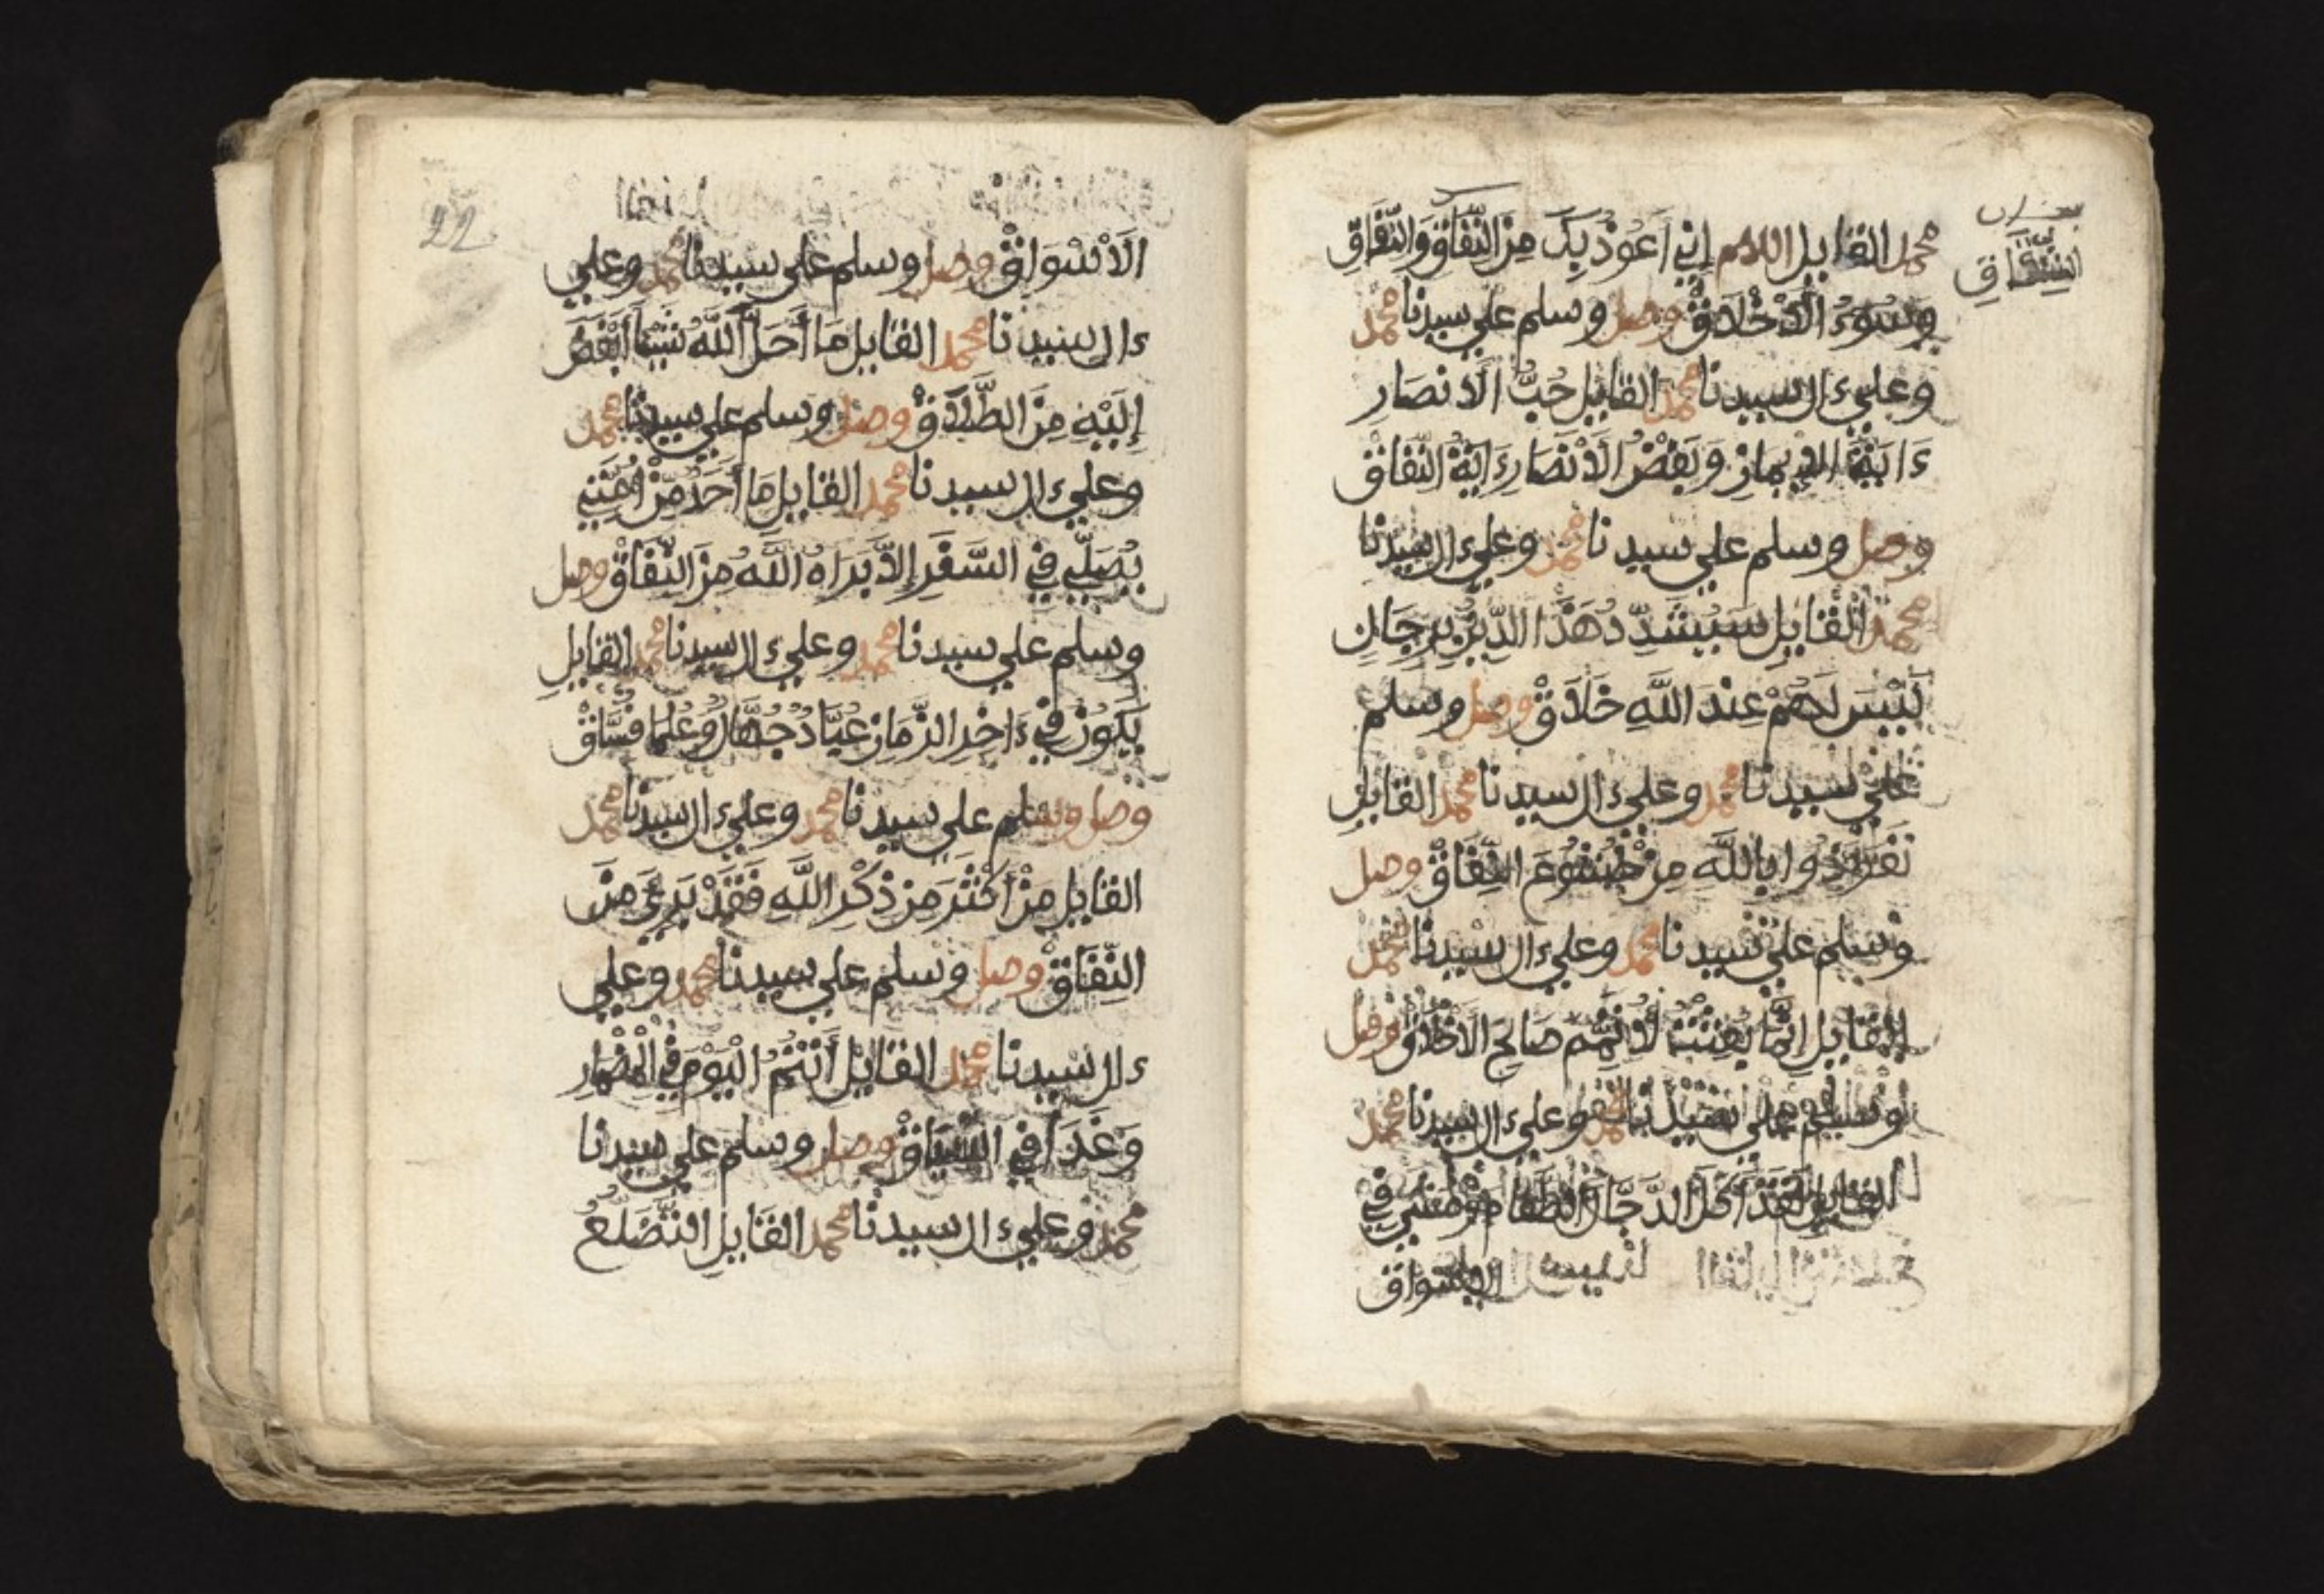 محمد القايل اللهم إِنِّي أَعُوذُ بِكَ مِنَ الشِّقَاقِ وَالنِّفَاقِ
الشِّقَاقِ
وَسُوءِ الْأَخْلَاقِ وصل وسلم علي سيدنا محمد
وعلي ءال سيدنا محمد القايل حُبُّ الَانصَارِ
ءَايَةُ الِايمَانِ وَبُغْضُ الَانْصَارِ ءَايَةُ النِّفَاقِ
وصل وسلم علي سيدنا محمد وعلي ءال سيدنا
محمد القايل سَيُشَدَّدُ هَذَا الدِّينُ بِرِجَالٍ
لَيْسَ لَهُمْ عِندَ اللَّهِ خَلَاقٌ وصل وسلم
علي سيدنا محمد وعلي ءال سيدنا محمد القايل
تَعَوَّذُوا بِاللَّهِ مِنْ خُشُوعِ النِّفَاقِ وصل
وسلم علي سيدنا محمد وعلي ءال سيدنا محمد
القايل إِنَّمَا بُعِثْتُ لِأُتَمِّمَ صَالِحَ الَاخْلَاقِ وصل
وسلم علي سيدنا محمد وعلي ءال سيدنا محمد
القايل لَقَدْ أَكَلَ الدَّجَّالُ الطَّعَامَ وَمَشَى فِي
الاسواق
22
الَاسْوَاقِ وصل وسلم علي سيدنا محمد وعلي
ءال سيدنا محمد القايل مَا أَحَلَّ اللَّهُ شَيْئًا أَبْغَضَ
إِلَيْهِ مِنَ الطَّلَاقِ وصل وسلم علي سيدنا محمد
وعلي ءال سيدنا محمد القايل مَا أَحَدٌ مِّنْ أُمَّتِي
يُصَلِّي فِي السَّفَرِ إِلَّا بَرَاهُ اللَّهُ مِنَ النِّفَاقِ وصل
وسلم علي سيدنا محمد وعلي ءال سيدنا محمد القايل
يَكُونُ فِي ءَاخِرِ الزَّمَانِ عُبَّادٌ جُهَّالٌ وَعُلَمَا فُسَّاقٌ
وصل وسلم علي سيدنا محمد وعلي ءال سيدنا محمد
القايل مَنْ أَكْثَرَ مِن ذِكْرِ اللَّهِ فَقَدْ بَرِئَ مِنَ
النِّفَاقِ وصل وسلم علي سيدنا محمد وعلي
ءال سيدنا محمد القايل أَنْتُمُ الْيَوْمَ فِي الْمِضْمَارِ
وَغَدًا فِي السِّبَاقِ وصل وسلم علي سيدنا
محمد وعلي ءال سيدنا محمد القايل التَّضَلُّعُ